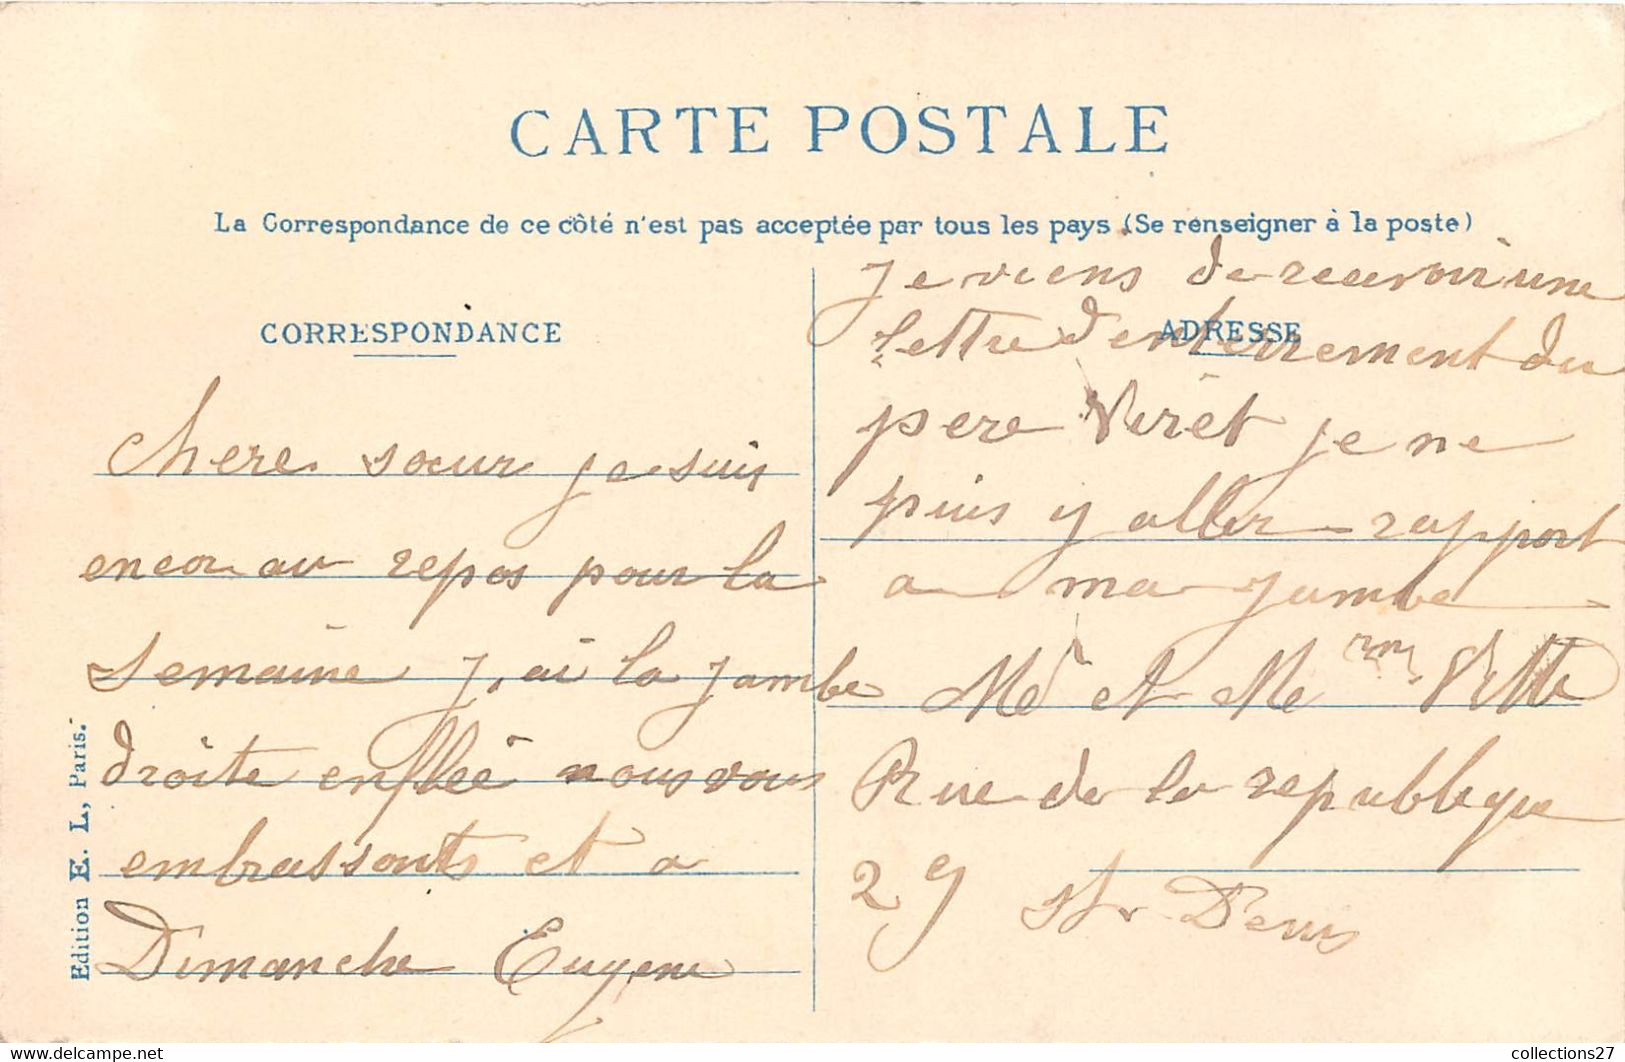 CARTE POSTALE
La Correspondance de ce côté n'est pas acceptée par tous les pays (Se renseigner à la poste)
CORRESPONDANCE
chere sœur je suis
encor au repos pour la
semaine j, ai la jambe
droite enflée nous vous
embrassonts et a
Dimanche Eugene
Edition E. L., Paris.
ADRESSE
je viens de recevoir une
lettre d'enterrement du
pere Virèt je ne
puis y aller rapport
a ma jambe
Mr et Me
Rue de la republique
29 St Denis
collections27